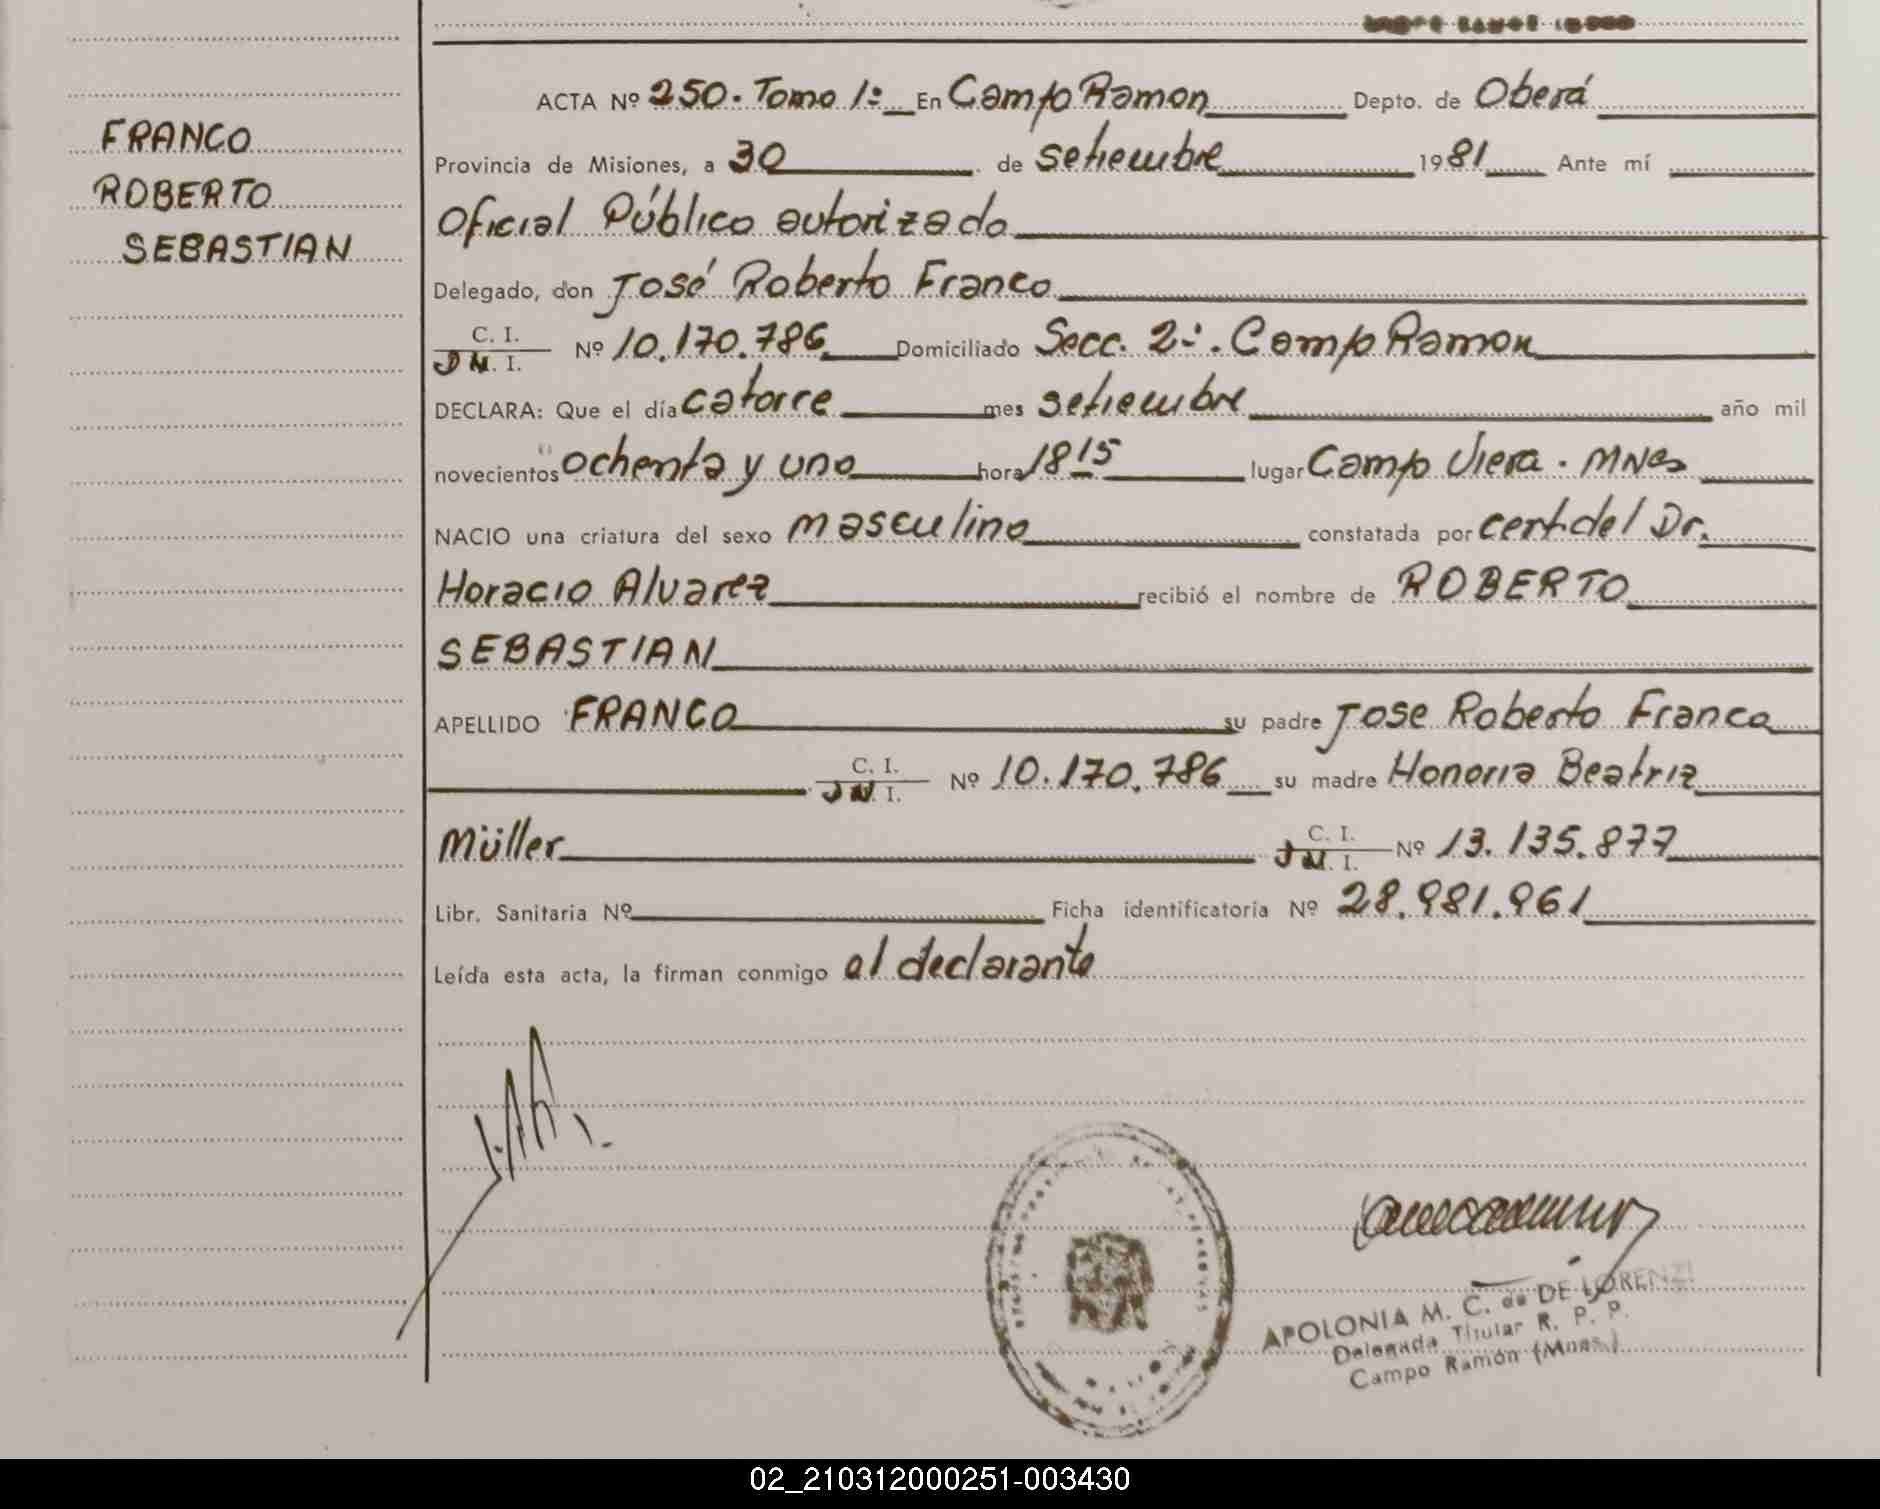 FRANCO
ROBERTO
SEBASTIAN
ACTA Nº 250. Tomo 1º En Campo Ramon Depto. de Oberá
Provincia de Misiones, a 30 de setiembre 1981 Ante mí
Oficial Público autorizado
Delegado, don José Roberto Franco
C. I.
D N. I. Nº 10.170.786 Domiciliado Secc. 2ª. Campo Ramon
DECLARA: Que el día catorce mes setiembre año mil
novecientos ochenta y uno hora 18 15 lugar Campo Viera. MNes
NACIO una criatura del sexo masculino constatada por cert. del Dr.
Horacio Alvarez recibió el nombre de ROBERTO
SEBASTIAN
APELLIDO FRANCO su padre Jose Roberto Franco
C. I.
D N. I. Nº 10.170.786 su madre Honoria Beatriz
Müller C. I.
D N. I. Nº 13.135.877
Libr. Sanitaria Nº Ficha identificatoria Nº 28.981.961
Leída esta acta, la firman conmigo el declarante
APOLONIA M. C. de DE LORENZI
Delegada Titular R. P. P.
Campo Ramón (Mnes.)
02_210312000251-003430